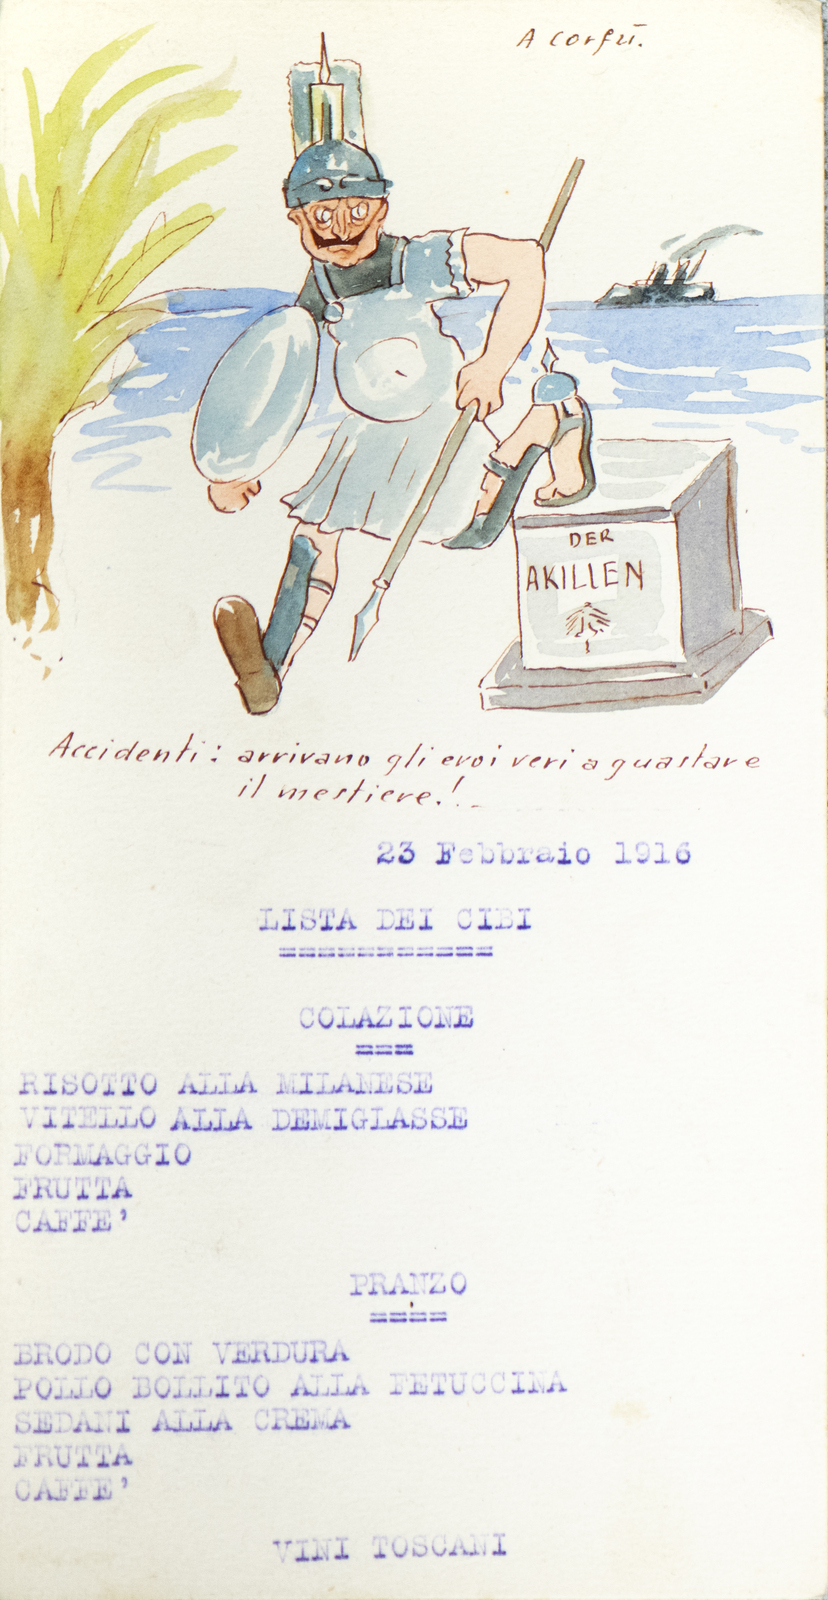 A Corfù.
DER
AKILLEN
Accidenti: arrivano gli eroi veri a guastare
il mestiere!
23 Febbraio 1916
LISTA DEI CIBI
===========
COLAZIONE
===
RISOTTO ALLA MILANESE
VITELLO ALLA DEMIGLASSE
FORMAGGIO
FRUTTA
CAFFE'
PRANZO
====
BRODO CON VERDURA
POLLO BOLLITO ALLA FETUCCINA
SEDANI ALLA CREMA
FRUTTA
CAFFE'
VINI TOSCANI